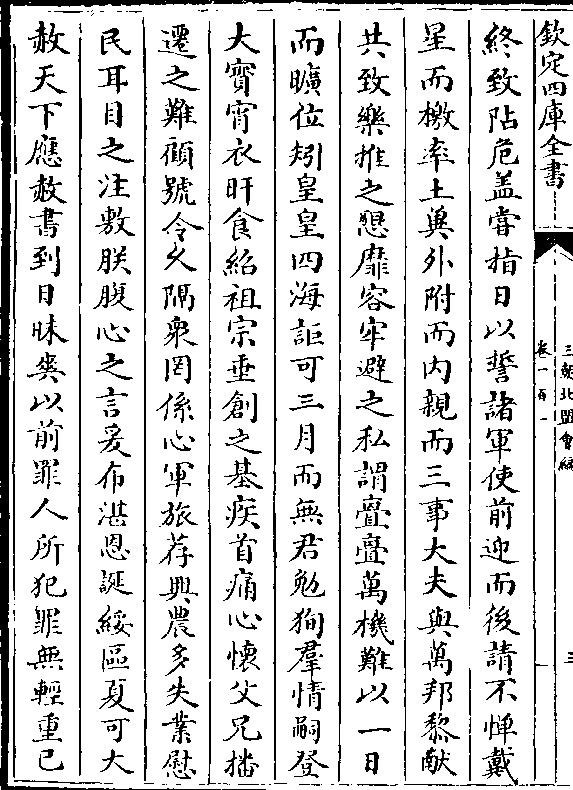 欽定四庫全書
三朝北盟會編
卷一百一
三
終致阽危盖嘗指日以誓諸軍使前迎而後請不憚戴
星而檄率土兾外附而内親而三事大夫與萬邦黎獻
共致樂推之懇靡容牢避之私謂亹亹萬機難以一日
而曠位矧皇皇四海詎可三月而無君勉狥羣情嗣登
大寳宵衣旰食紹祖宗垂創之基疾首痛心懷父兄播
遷之難顧號令久隔衆罔係心軍旅荐興農多失業慰
民耳目之注敷朕腹心之言爰布湛恩誕綏區夏可大
赦天下應赦書到日昧爽以前罪人所犯罪無輕重已